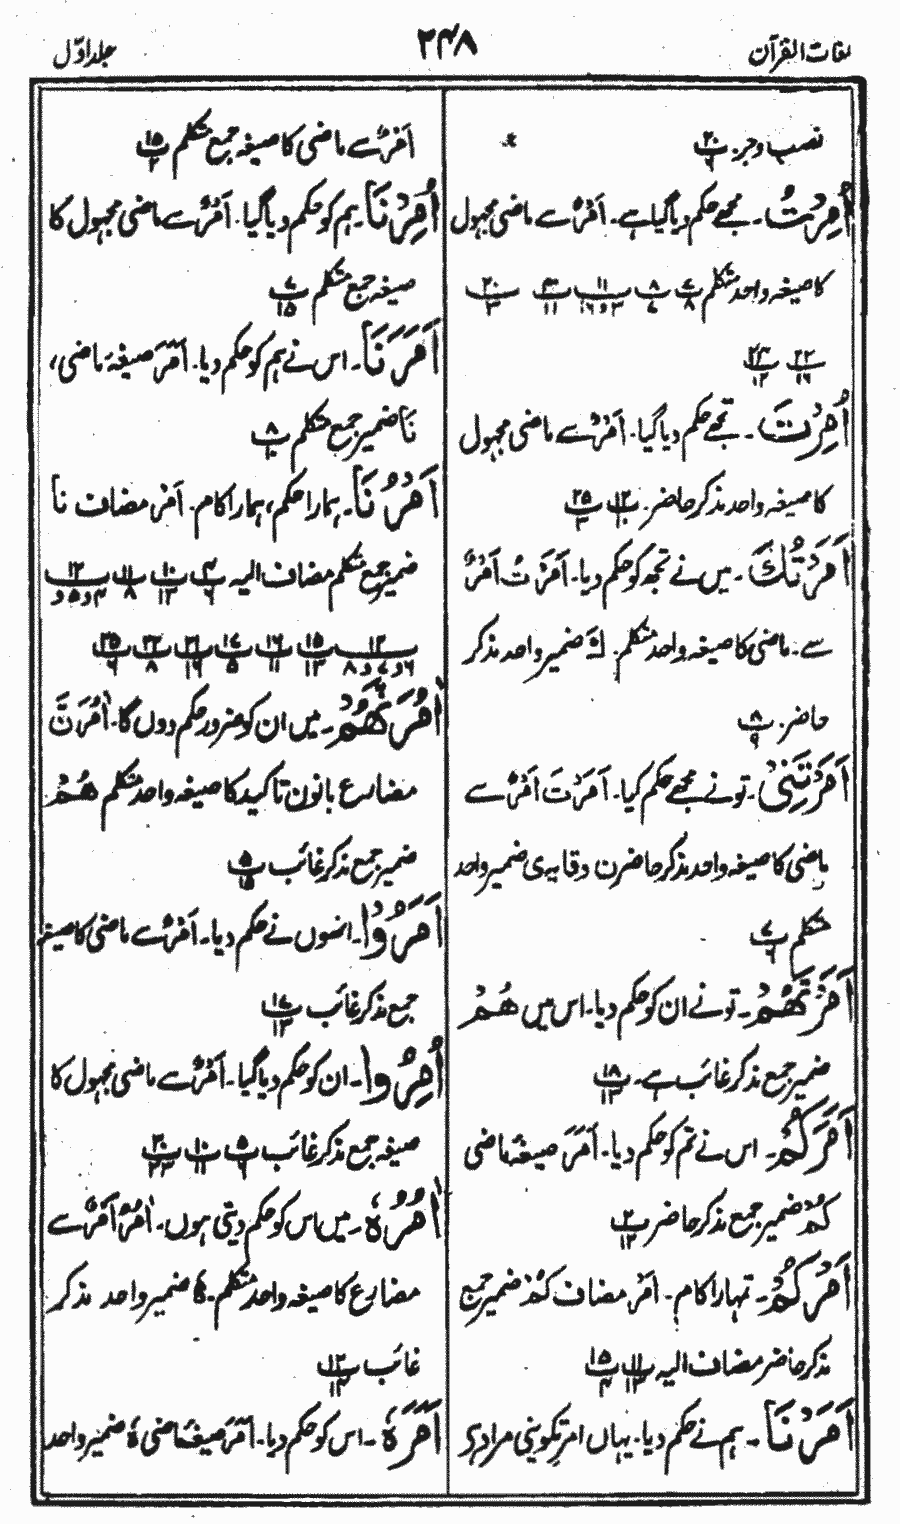 لغات القرآن
۲۴۸
جلد اوّل
نصب وجر. پ ۲۰ / ۶
أُمِرْتُ ۔ مجھے حکم دیا گیا ہے۔ اَمْرٌ سے ماضی مجہول
کا صیغہ واحد متکلم پ ۷ / ۸ پ ۸ / ۷ پ ۱۱ / ۳ و ۱۶ پ ۱۳ / ۱۱ پ ۲۰ / ۳
۲۲ / ۱۶ ۲۳ / ۱۲
أُمِرْتَ ۔ تجھے حکم دیا گیا۔ اَمْرٌ سے ماضی مجہول
کا صیغہ واحد مذکر حاضر. پ ۱۲ / ۱۰ پ ۲۵ / ۳
أَمَرْتُكَ ۔ میں نے تجھ کو حکم دیا۔ اَمَرْتُ اَمْرٌ
سے ۔ ماضی کا صیغہ واحد متکلم. كَ ضمیر واحد مذکر
حاضر. پ ۸ / ۹
أَمَرْتَنِيْ ۔ تو نے مجھے حکم کیا۔ اَمَرْتَ اَمْرٌ سے
ماضی کا صیغہ واحد مذکر حاضر ن وقایہ ی ضمیر واحد
متکلم پ ۷ / ۶
أَمَرْتَهُمْ ۔ تو نے ان کو حکم دیا۔ اس میں هُمْ
ضمیر جمع مذکر غائب ہے۔ پ ۱۸ / ۱۳
أَمَرَكُمْ ۔ اس نے تم کو حکم دیا۔ اَمَرَ صیغۂ ماضی
كُمْ ضمیر جمع مذکر حاضر پ ۲ / ۱۲
أَمْرُكُمْ ۔ تمہارا کام۔ اَمْرُ مضاف كُمْ ضمیر جمع
مذکر حاضر مضاف الیہ پ ۱۱ / ۱۳ پ ۱۵ / ۴
أَمَرْنَا ۔ ہم نے حکم دیا۔ یہاں امر تکوینی مراد ہی
اَمْرٌ سے ماضی کا صیغہ جمع متکلم پ ۱۵ / ۲
أُمِرْنَا ۔ ہم کو حکم دیا گیا۔ اَمْرٌ سے ماضی مجہول کا
صیغہ جمع متکلم پ ۷ / ۱۵
أَمَرَنَا ۔ اس نے ہم کو حکم دیا۔ اَمَرَ صیغۂ ماضی،
نَا ضمیر جمع متکلم پ ۸ / ۱۰
أَمْرُنَا ۔ ہمارا حکم، ہمارا کام۔ اَمْرُ مضاف نا
ضمیر جمع متکلم مضاف الیہ پ ۴ / ۶ پ ۱۰ / ۱۳ پ ۱۱ / ۸ پ ۱۲ / ۴ و ۵ و
۱۲ / ۶ و ۷ و ۸ پ ۱۵ / ۱۳ پ ۱۶ / ۱۱ پ ۱۷ / ۵ پ ۲۱ / ۱۶ پ ۲۲ / ۸ پ ۲۵ / ۶
لَاٰمُرَنَّهُمْ ۔ میں ان کو ضرور حکم دوں گا۔ اٰمُرَنَّ
مضارع بانون تاکید کا صیغہ واحد متکلم هُمْ
ضمیر جمع مذکر غائب پ ۵ / ۱۵
أَمَرُوْا ۔ انہوں نے حکم دیا۔ اَمْرٌ سے ماضی کا صیغہ
جمع مذکر غائب پ ۱۷ / ۱۳
أُمِرُوْا ۔ ان کو حکم دیا گیا۔ اَمْرٌ سے ماضی مجہول کا
صیغہ جمع مذکر غائب پ ۵ / ۶ پ ۱۰ / ۱۱ پ ۳۰ / ۲۳
اٰمُرُهٗ ۔ میں اس کو حکم دیتی ہوں۔ اٰمُرُ اَمْرٌ سے
مضارع کا صیغہ واحد متکلم۔ هٗ ضمیر واحد مذکر
غائب پ ۱۲ / ۱۴
أَمَرَهٗ ۔ اس کو حکم دیا۔ اَمَرَ صیغۂ ماضی هٗ ضمیر واحد